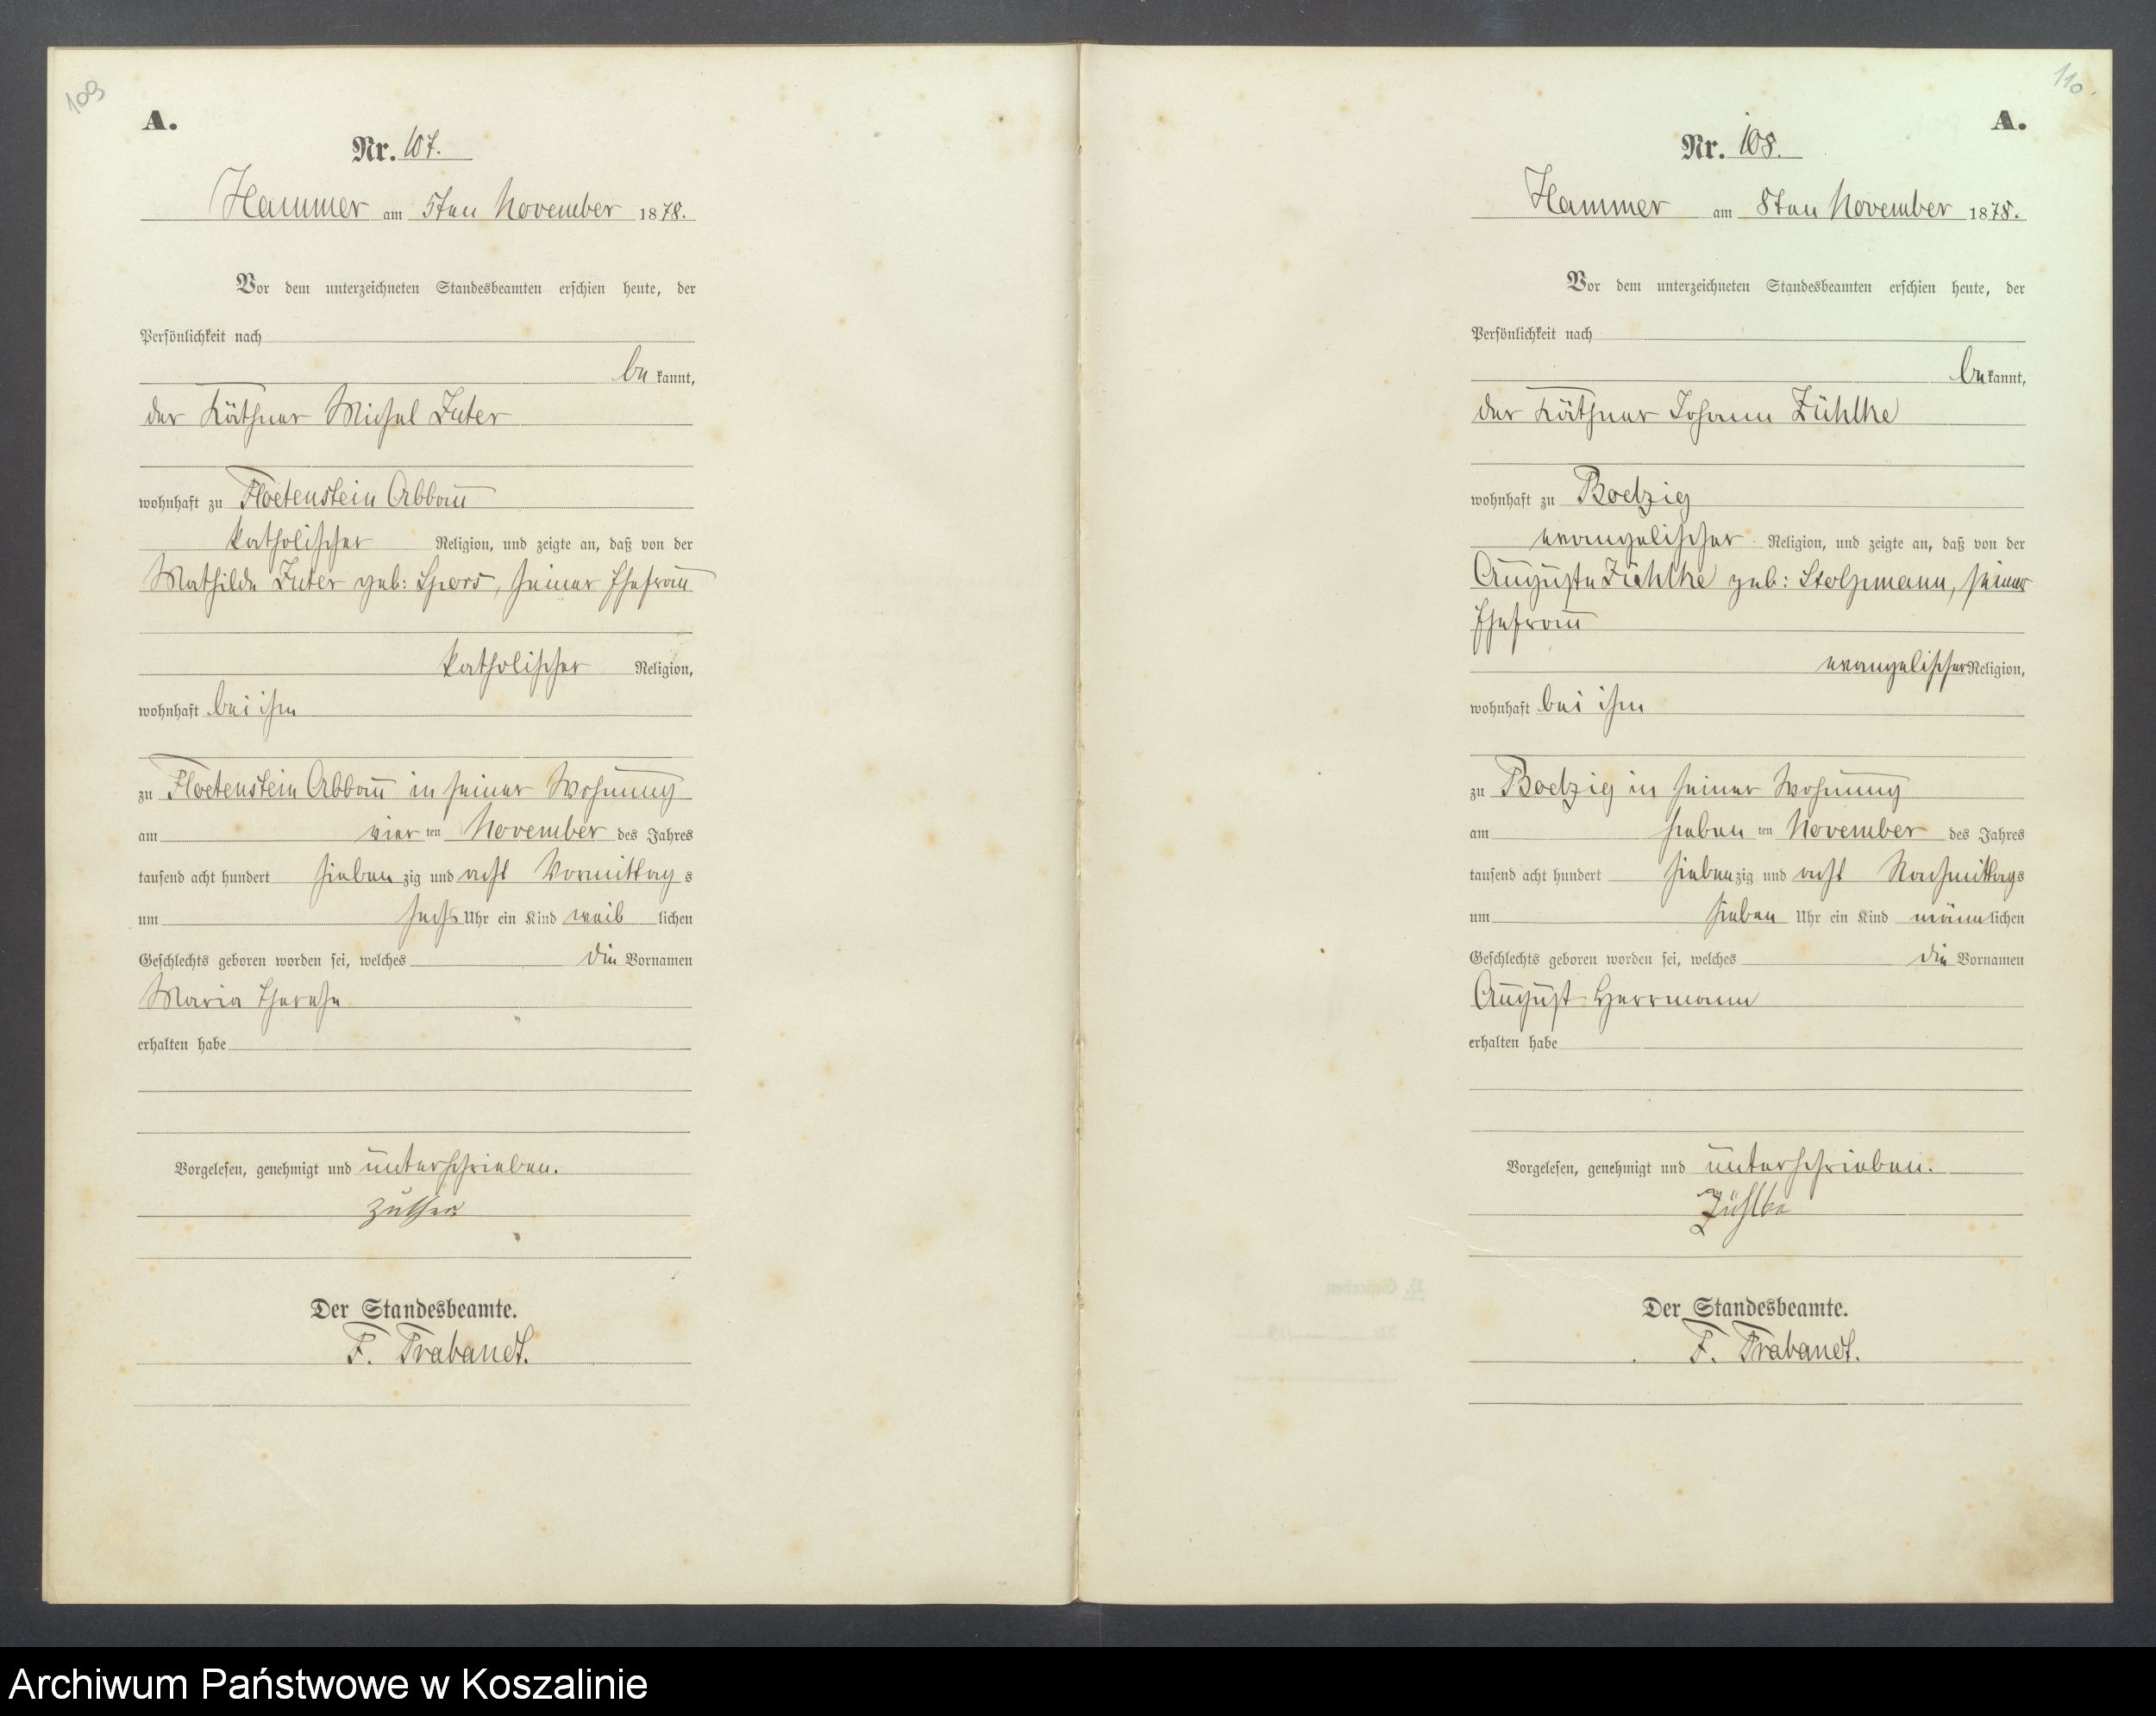 109
A.
Nr. 107.
Hammer am 5ten November 1878.
Vor dem unterzeichneten Standesbeamten erschien heute, der
Persönlichkeit nach
be kannt,
der Käthner Michel Zuter
wohnhaft zu Floetenstein Abbau
katholischer Religion, und zeigte an, daß von der
Mathilde Zuter geb: Spors, seiner Ehefrau
katholischer Religion,
wohnhaft bei ihm
zu Floetenstein Abbau in seiner Wohnung
am vier ten November des Jahres
tausend acht hundert sieben zig und acht Vormittag s
um sechs Uhr ein Kind weib lichen
Geschlechts geboren worden sei, welches die Vornamen
Maria Therese
erhalten habe
Vorgelesen, genehmigt und unterschrieben.
Der Standesbeamte.
F. Trabandt.
110
A.
Nr. 108.
Hammer am 8ten November 1878.
Vor dem unterzeichneten Standesbeamten erschien heute, der
Persönlichkeit nach
be kannt,
der Käthner Johann Zühlke
wohnhaft zu Boelzig
evangelischer Religion, und zeigte an, daß von der
Auguste Zühlke geb: Stolpmann, seiner
Ehefrau
evangelischer Religion,
wohnhaft bei ihm
zu Boelzig in seiner Wohnung
am sieben ten November des Jahres
tausend acht hundert sieben zig und acht Nachmittags
um sieben Uhr ein Kind männ lichen
Geschlechts geboren worden sei, welches die Vornamen
August Herrmann
erhalten habe
Vorgelesen, genehmigt und unterschrieben.
Zühlke
Der Standesbeamte.
F. Trabandt.
Archiwum Państwowe w Koszalinie